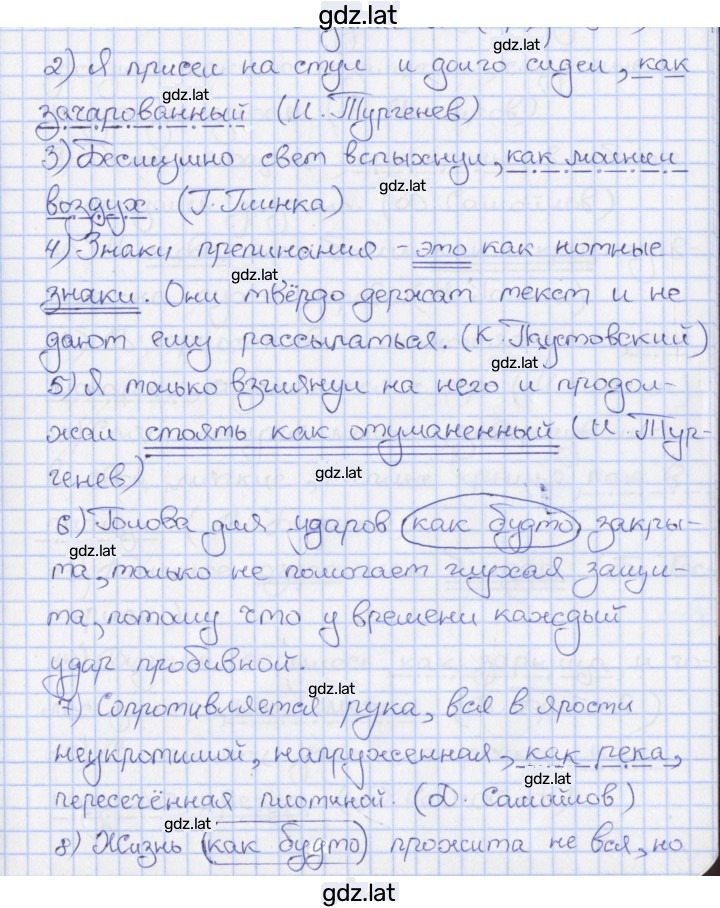 gdz.lat
gdz.lat
2) Я присел на стул и долго сидел, как
gdz.lat
зачарованный (И. Тургенев)
3) Бесшумно свет вспыхнул, как молнии
gdz.lat
воздух. (Г. Глинка)
4) Знаки препинания - это как нотные
gdz.lat
знаки. Они твёрдо держат текст и не
дают ему рассыпаться. (К. Паустовский)
gdz.lat
5) Я только взглянул на него и продол-
жал стоять как отуманенный (И. Тур-
генев)
gdz.lat
6) Голова для ударов как будто закры-
gdz.lat
та, только не помогает глухая защи-
та, потому что у времени каждый
удар пробивной.
gdz.lat
7) Сопротивляется рука, вся в ярости
неукротимой, напруженная, как река,
gdz.lat
пересечённая плотиной. (Д. Самойлов)
gdz.lat
8) Жизнь (как будто) прожита не вся, но
gdz.lat